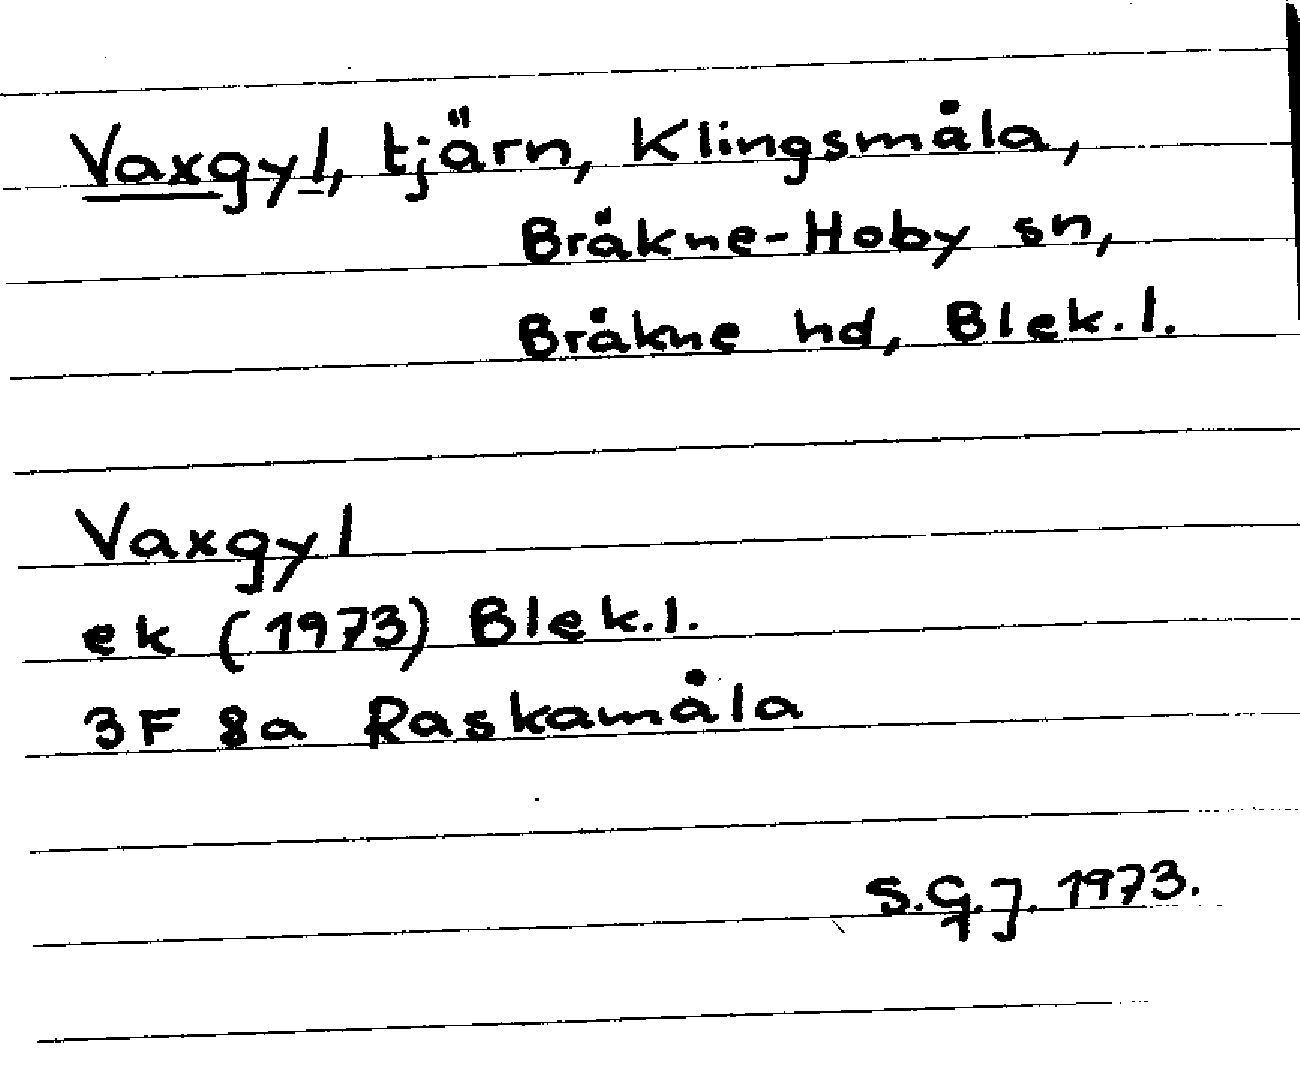 Vaxgyl, tjärn, Klingsmåla,
Bräkne-Hoby sn,
Bräkne hd, Blek.l.
Vaxgyl
ek (1973) Blek.l.
3F 8a Raskamåla
S.G.J. 1973.